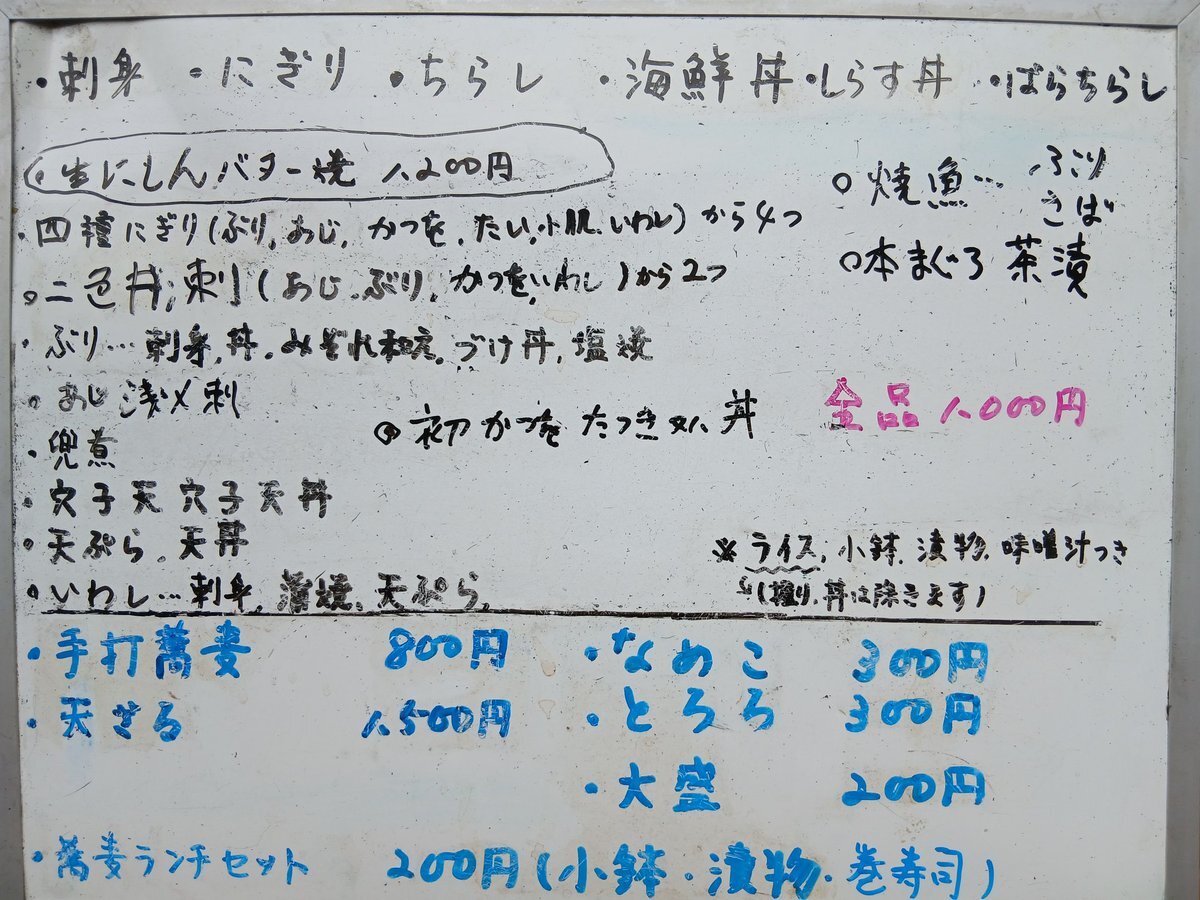 ・刺身 ・にぎり ・ちらし ・海鮮丼・しらす丼 ・ばらちらし
・生にしんバター焼 1,200円
・四種にぎり(ぶり,あじ,かつを,たい,小肌,いわし)から4つ
・二色丼,刺(あじ,ぶり,かつを,いわし)から2つ
・ぶり…刺身,丼,みぞれ和え,づけ丼,塩焼
・あじ 浅〆刺
・兜煮
・穴子天 穴子天丼
・天ぷら,天丼
・いわし…刺身,蒲焼,天ぷら,
○焼魚… ぶり
さば
○本まぐろ茶漬
・初かつを たつき 丼
全品 1,000円
※ライス,小鉢,漬物,味噌汁つき
(握り,丼は除きます)
・手打蕎麦 800円
・天ざる 1,500円
・なめこ 300円
・とろろ 300円
・大盛 200円
・蕎麦ランチセット 200円(小鉢・漬物・巻寿司)